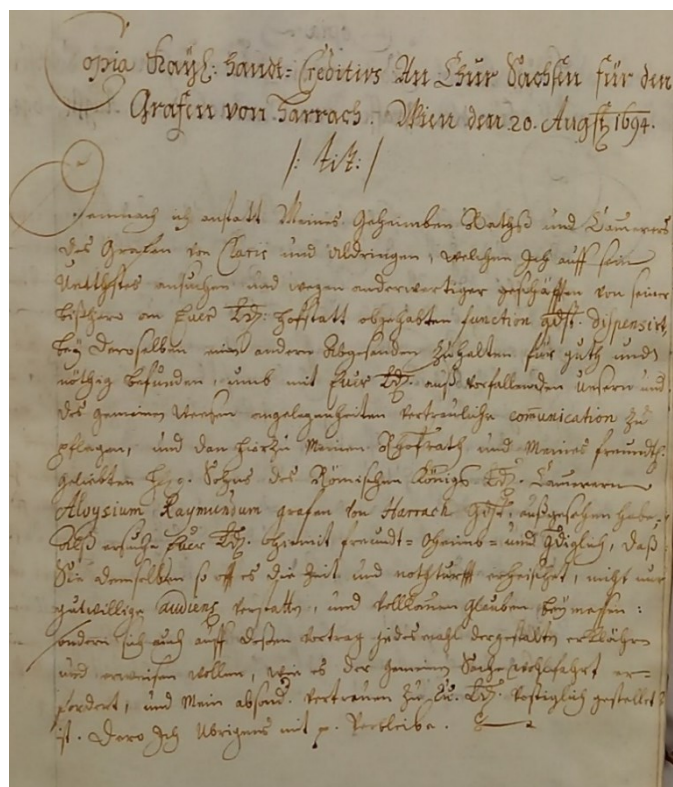 Copia Kayl: Handt=Creditivs An Chur Sachsen für den
Grafen von Harrach. Wien den 20. Augsti 1694.
/: tit: /
Demnach ich anstatt Meines Geheimben Raths und Camerers
des Grafen von Clari und Aldringen, welchen Ich auff sein
ansuchen und wegen anderwertiger geschäfften von seiner
bißhero an Euer Ld: Hofstatt obgehabten function gdst. dispensirt,
bey Deroselben einen andern Abgesanden zu halten für guth und
nöthig befunden, umb mit Euer Ld. auß vorfallenden Unsern und
des gemeinen Weesen angelegenheiten vertrauliche communication zu
pflegen, und dan hierzu Meinen RHofrath und Meines freundtl:
geliebten Sohns des Römischen Königs Ld. Camerern
Aloysium Raymundum grafen von Harrach Gdst. außgesehen habe,
Alß ersuche Euer Ld. hiemit freundt= Oheimb= und Gdiglich, daß
Sie demselben so oft es die Zeit und notturfft erheischet, nicht nur
gutwillige audienz verstatten, und vollkommen Glauben beymessen:
sondern sich auch auff deßen vortrag jedesmahl dergestalten erklähren
und erweisen wollen, wie es der gemeinen Sache wohlfahrt er=
fordert, und Mein absond. vertrauen zu Eu. Ld. vestiglich gestellet
ist. Dero Ich Ubrigens mit p. Verbleibe.